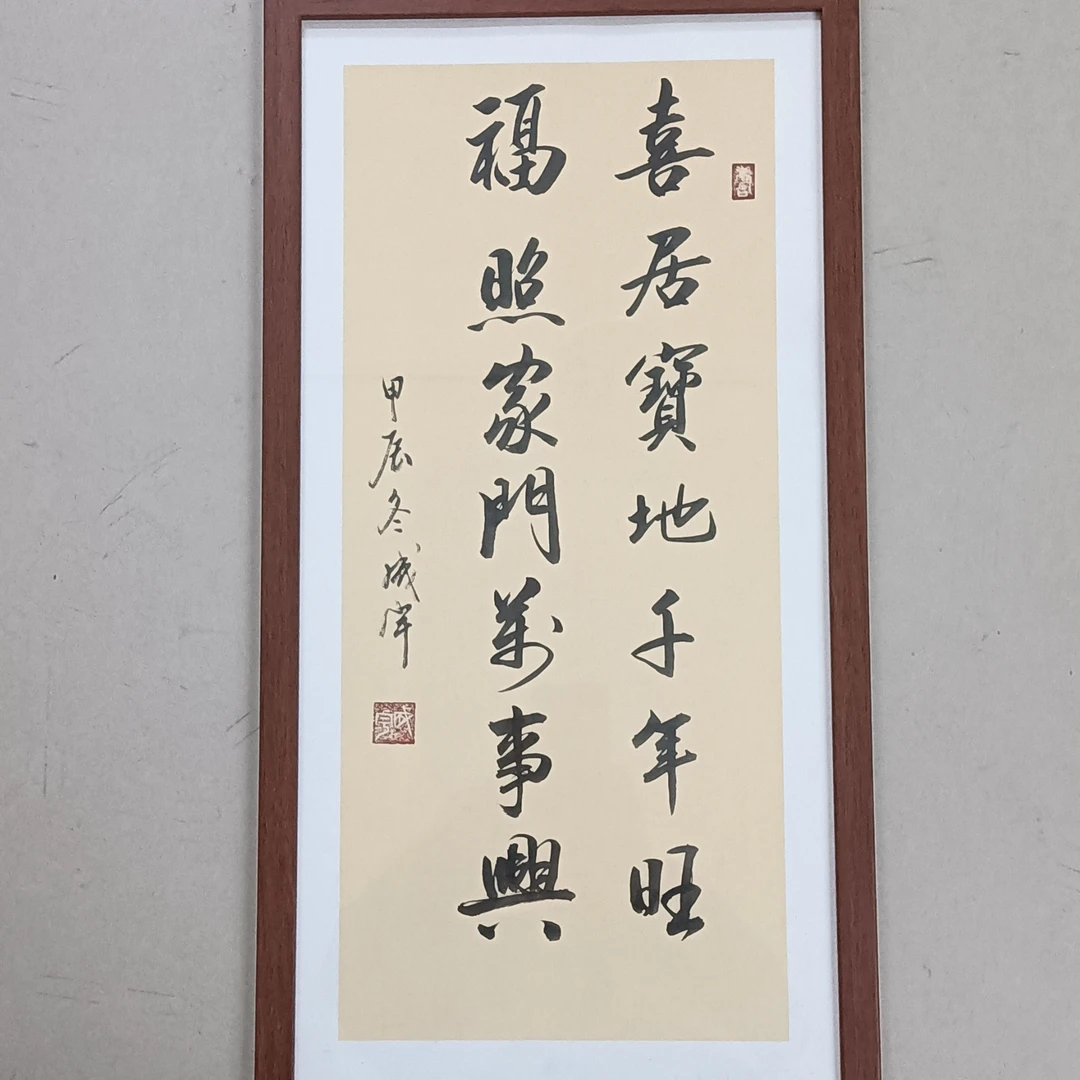 喜居寶地千年旺
福照家門萬事興
甲辰冬成岸